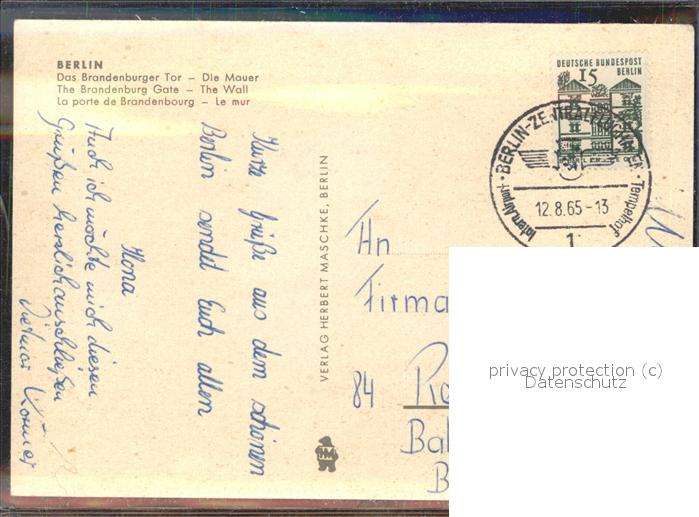 BERLIN
Das Brandenburger Tor — Die Mauer
The Brandenburg Gate — The Wall
La porte de Brandenbourg — Le mur
DEUTSCHE BUNDESPOST
BERLIN
15
BERLIN-ZENTRALFLUGHAFEN
12.8.65-13
Intern. Airport
Tempelhof
1
Kurze Grüße aus dem schönen
Berlin sendet Euch allen
Ilona
Auch ich möchte mich diesen
Grüßen herzlich anschließen
Dietmar
VERLAG HERBERT MASCHKE, BERLIN
HM
An
Firma
84
Ba
B
privacy protection (c)
Datenschutz